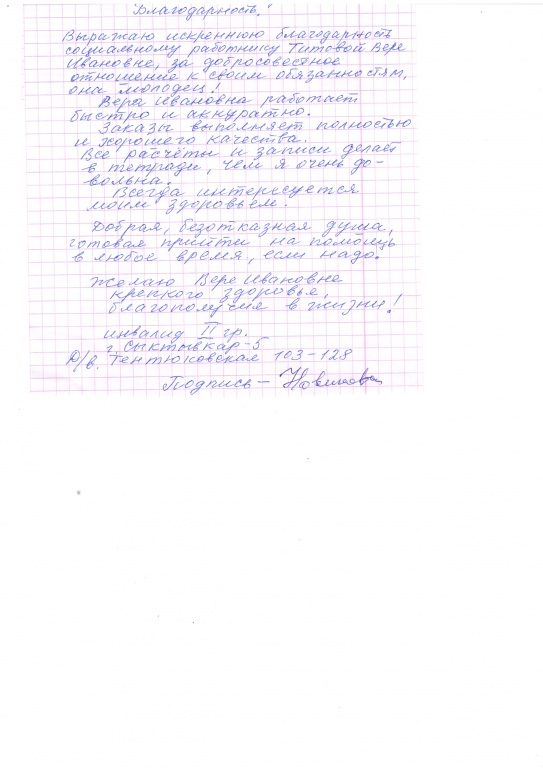 "Благодарность."
Выражаю искреннюю благодарность
социальному работнику Титовой Вере
Ивановне, за добросовестное
отношение к своим обязанностям,
она молодец!
Вера Ивановна работает
быстро и аккуратно.
Заказы выполняет полностью
и хорошего качества.
Все расчёты и записи делает
в тетради, чем я очень до-
вольна.
Всегда интересуется
моим здоровьем.
Добрая, безотказная душа,
готовая прийти на помощь
в любое время, если надо.
Желаю Вере Ивановне
крепкого здоровья,
благополучия в жизни!
инвалид II гр.
г. Сыктывкар-5
Д/в. Тентюковская 103-128
Подпись —